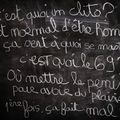 c'est quoi un clito?
est normal d'être hom
ça sert à quoi se mas
c'est quoi le 69?
Où mettre le peni
pour avoir du plaisi
1ère fois, ça fait mal